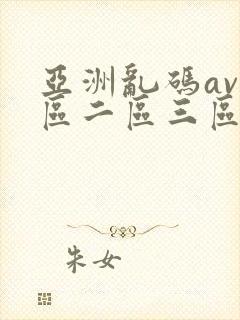 亞洲亂碼av
區二區三區
朱女